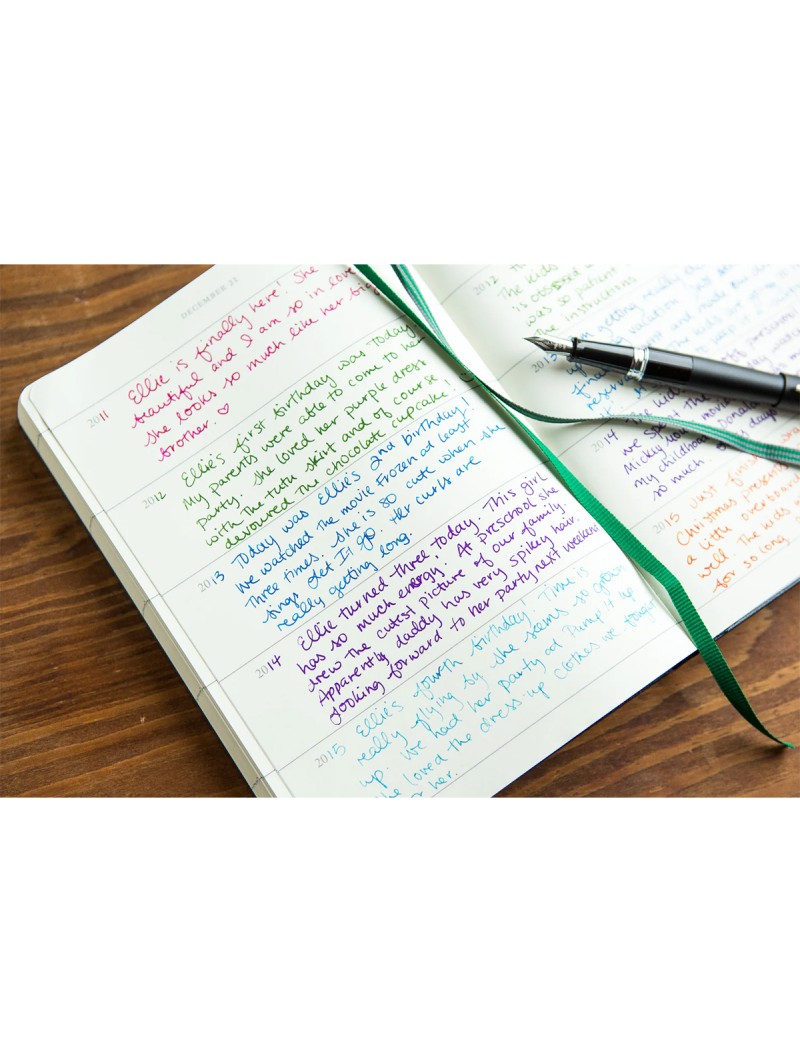 DECEMBER 21
2011 Ellie is finally here! She
beautiful and I am so in love
she looks so much like her big
brother. ♡
2012 Ellie's first birthday was today!
My parents were able to come to her
party. She loved her purple dress
with the tutu skirt and of course
devoured the chocolate cupcake!
2013 Today was Ellie's 2nd birthday!
We watched the movie Frozen at least
three times. She is so cute when she
sings Let It Go. Her curls are
really getting long.
2014 Ellie turned three today. This girl
has so much energy! At preschool she
drew the cutest picture of our family.
Apparently daddy has very spikey hair.
Looking forward to her party next weekend
2015 Ellie's fourth birthday! Time is
really flying by. She seems so grown
up. We had her party at Pump it up
she loved the dress-up clothes we
her.
2012
The kids
is
was so patient
the instructions
2013 getting
vacation
2014 The kids
we spent the movie
Mickey
my childhood Donald
so much days
2015 Just finish
Christmas presents
a little overboard
well. The kids
for so long